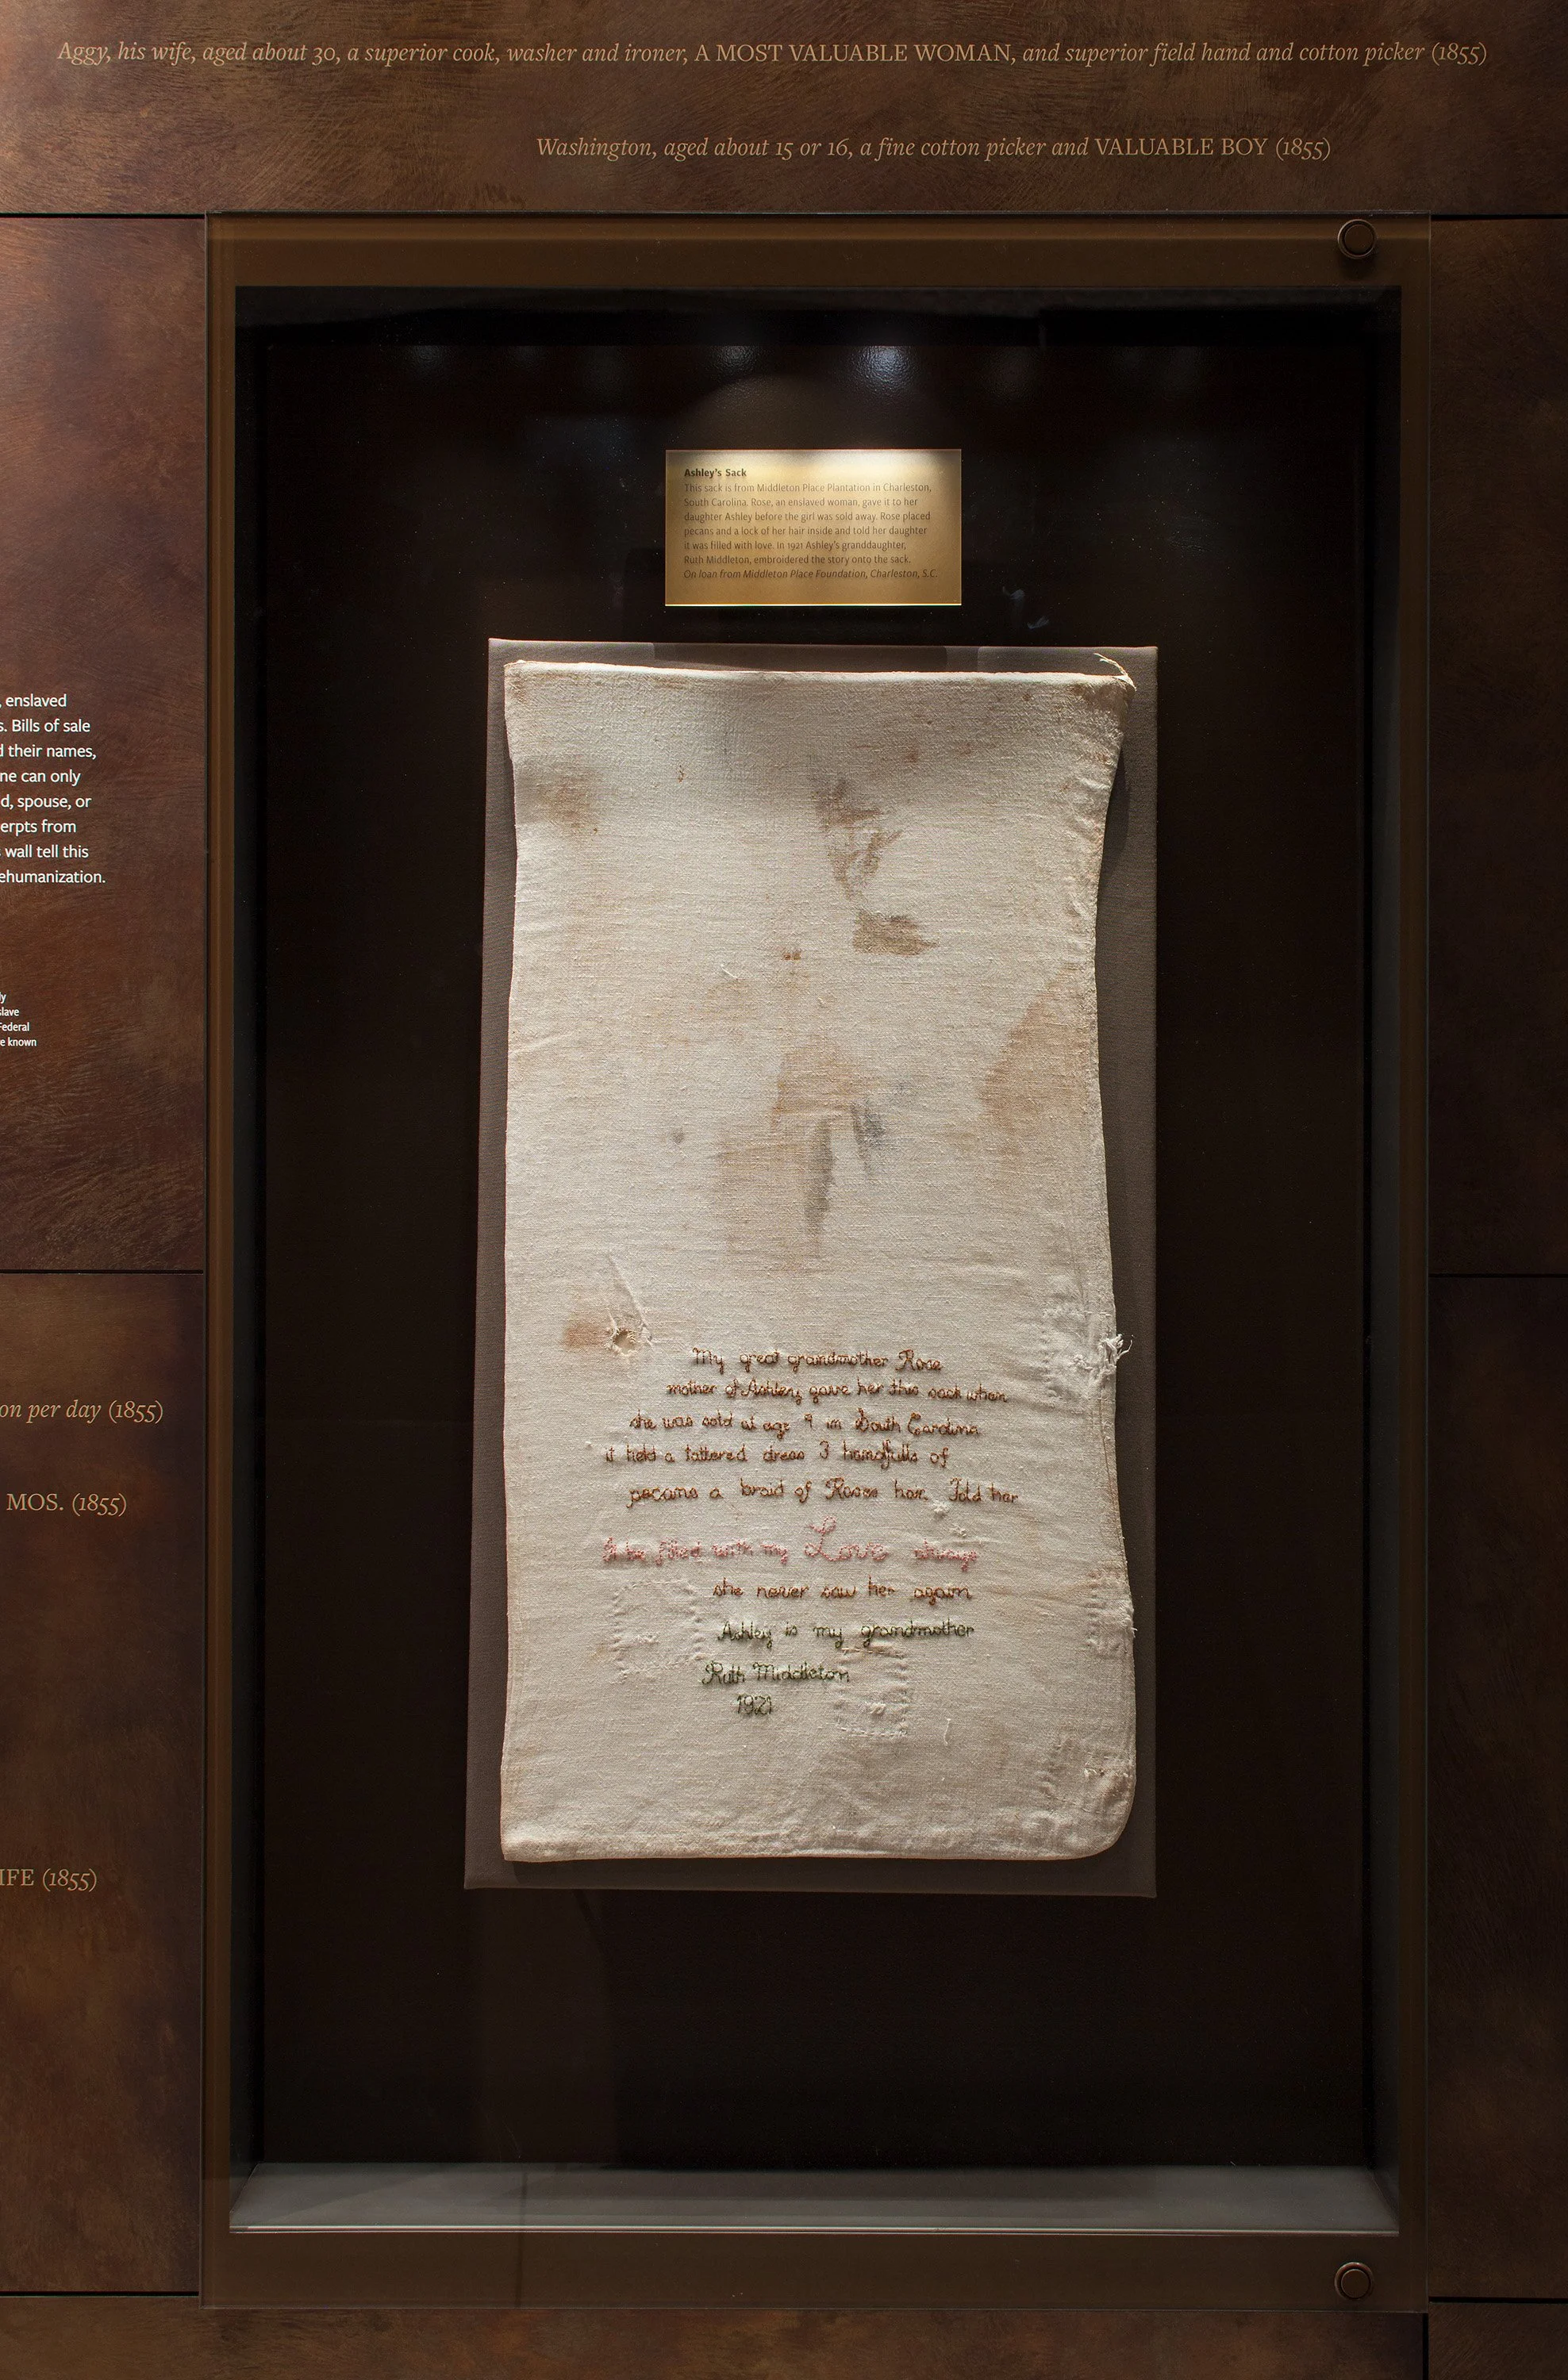 Aggy, his wife, aged about 30, a superior cook, washer and ironer, A MOST VALUABLE WOMAN, and superior field hand and cotton picker (1855)
Washington, aged about 15 or 16, a fine cotton picker and VALUABLE BOY (1855)
Ashley's Sack
This sack is from Middleton Place Plantation in Charleston,
South Carolina. Rose, an enslaved woman, gave it to her
daughter Ashley before the girl was sold away. Rose placed
pecans and a lock of her hair inside and told her daughter
it was filled with love. In 1921 Ashley's granddaughter,
Ruth Middleton, embroidered the story onto the sack.
On loan from Middleton Place Foundation, Charleston, S.C.
, enslaved
s. Bills of sale
d their names,
ne can only
d, spouse, or
erpts from
wall tell this
ehumanization.
ly
slave
Federal
e known
on per day (1855)
MOS. (1855)
IFE (1855)
My great grandmother Rose
mother of Ashley gave her this sack when
she was sold at age 9 in South Carolina
it held a tattered dress 3 handfulls of
pecans a braid of Roses hair. Told her
It be filled with my Love always
she never saw her again
Ashley is my grandmother
Ruth Middleton
1921